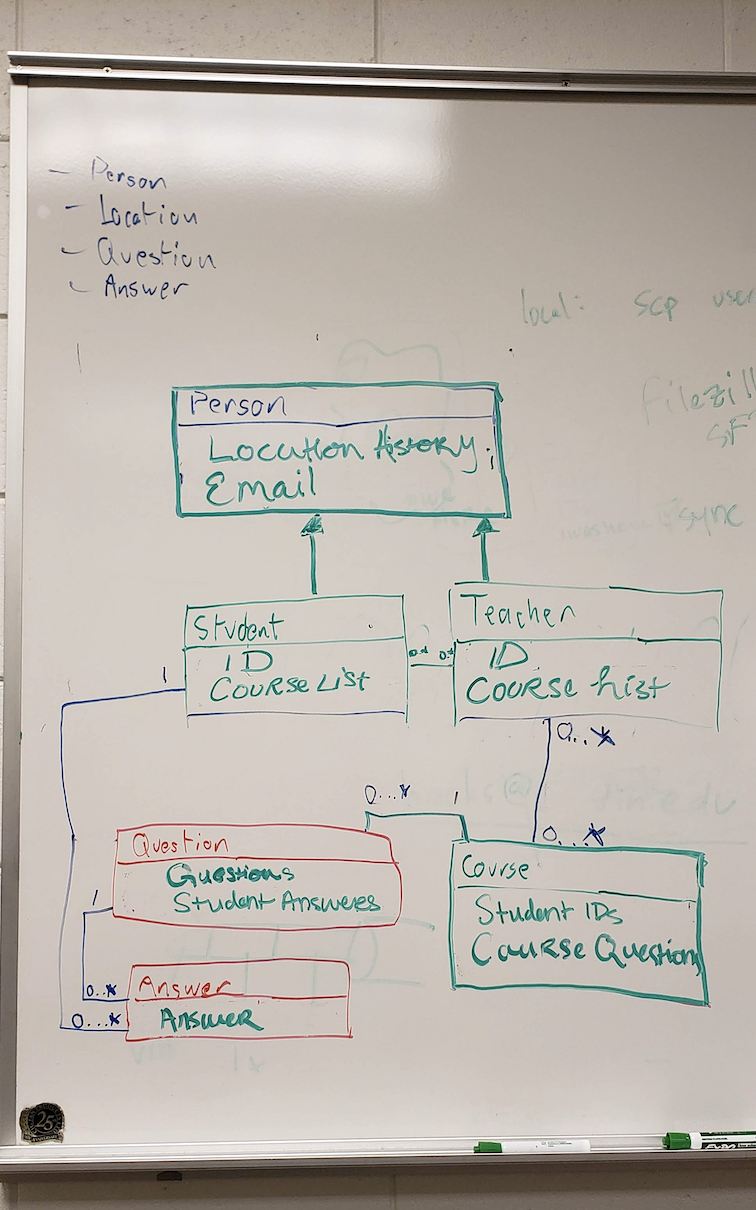 - Person
- Location
- Question
- Answer
local: scp
Person
Location History
Email
sync
Student
ID
Course List
Teacher
ID
Course List
0..* 0..*
1
0..*
0...* 1
0...*
Question
Questions
Student Answeres
Course
Student IDs
Course Questions
1
0..*
Answer
Answer
0...*
25